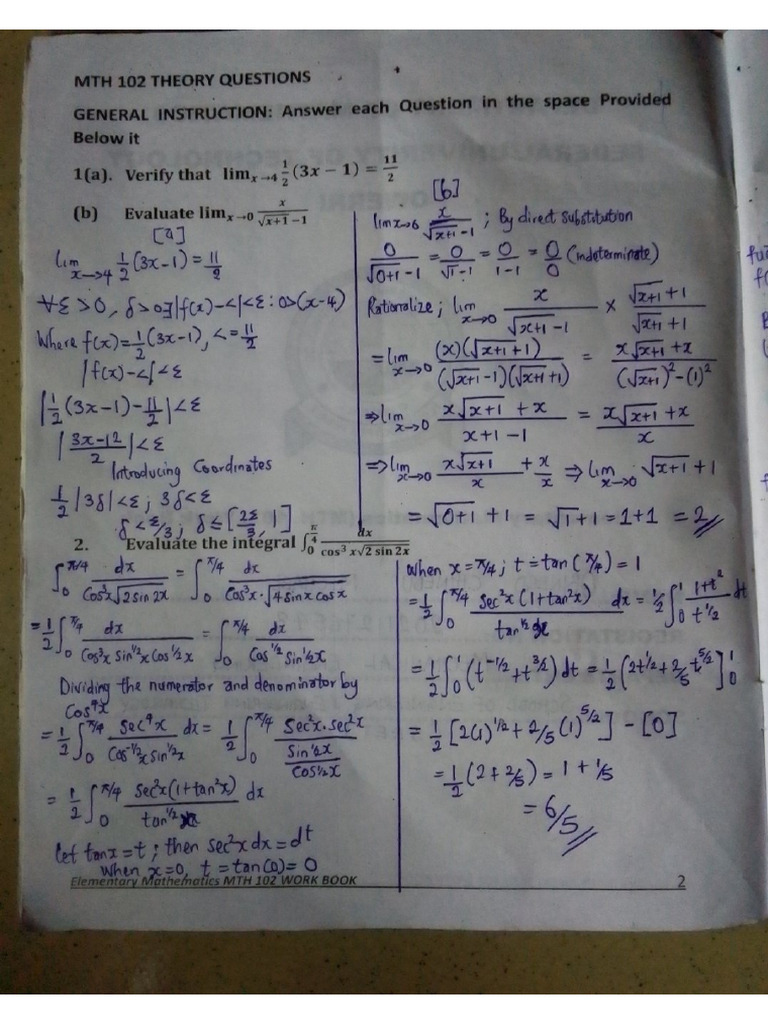 MTH 102 THEORY QUESTIONS
GENERAL INSTRUCTION: Answer each Question in the space Provided
Below it
1(a). Verify that lim_{x→4} 1/2 (3x − 1) = 11/2
(b) Evaluate lim_{x→0} x/(√(x+1) −1)
[a]
lim_{x→4} 1/2 (3x-1) = 11/2
∀ε > 0, δ > 0 ∃ |f(x) - L| < ε : 0 > (x-4)
Where f(x) = 1/2 (3x-1), L = 11/2
|f(x) - L| < ε
|1/2 (3x-1) - 11/2| < ε
|(3x-12)/2| < ε
Introducing Coordinates
1/2 |3δ| < ε ; 3δ < ε
δ < ε/3 ; δ ≤ [2ε/3, 1]
[b]
lim x→6 x/(√(x+1) -1) ; By direct substitution
0/(√(0+1) -1) = 0/(√1 -1) = 0/(1-1) = 0/0 (indeterminate)
Rationalize ; lim_{x→0} x/(√(x+1) -1) × (√(x+1) +1)/(√(x+1) +1)
= lim_{x→0} (x)(√(x+1) +1)/((√(x+1) -1)(√(x+1) +1)) = (x√(x+1) +x)/((√(x+1))² -(1)²)
⇒ lim_{x→0} (x√(x+1) + x)/(x+1-1) = (x√(x+1) +x)/x
⇒ lim_{x→0} x√(x+1)/x + x/x ⇒ lim_{x→0} √(x+1) + 1
= √(0+1) + 1 = √1 + 1 = 1+1 = 2
2. Evaluate the integral ∫_0^{π/4} dx/(cos³ x√(2 sin 2x))
∫_0^{π/4} dx/(Cos³x√(2 Sin 2x)) = ∫_0^{π/4} dx/(Cos³x · √(4 Sinx cosx))
= 1/2 ∫_0^{π/4} dx/(Cos³x Sin^{1/2}x Cos^{1/2}x) = ∫_0^{π/4} dx/(Cos^{7/2} Sin^{1/2}x)
Dividing the numerator and denominator by
Cos⁴x
= 1/2 ∫_0^{π/4} Sec⁴x/(Cos^{-1/2}x Sin^{1/2}x) dx = 1/2 ∫_0^{π/4} Sec²x · Sec²x/(Sin^{1/2}x/Cos^{1/2}x)
= 1/2 ∫_0^{π/4} Sec²x(1+tan²x)/tan^{1/2}x dx
Let tanx = t ; then Sec²x dx = dt
When x = 0, t = tan(0) = 0
When x = π/4 ; t = tan(π/4) = 1
= 1/2 ∫_0^{π/4} Sec²x(1+tan²x)/tan^{1/2}x dx = 1/2 ∫_0^1 (1+t²)/t^{1/2} dt
= 1/2 ∫_0^1 (t^{-1/2} + t^{3/2}) dt = 1/2 (2t^{1/2} + 2/5 t^{5/2})_0^1
= 1/2 [2(1)^{1/2} + 2/5 (1)^{5/2}] - [0]
= 1/2 (2 + 2/5) = 1 + 1/5
= 6/5
Elementary Mathematics MTH 102 WORK BOOK 2